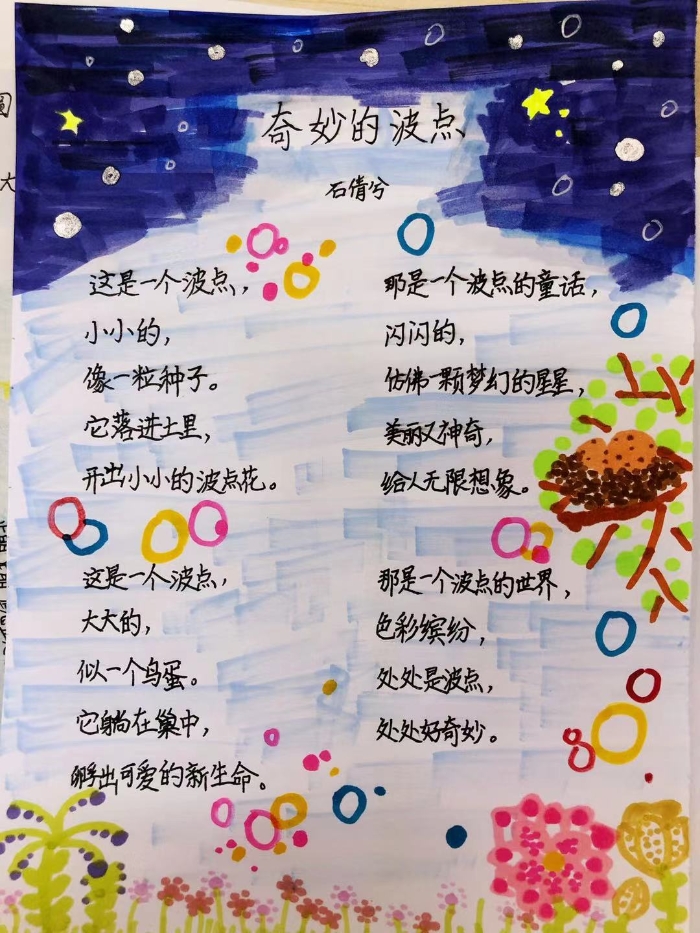 奇妙的波点
石倩兮
这是一个波点，
小小的，
像一粒种子。
它落进土里，
开出小小的波点花。
这是一个波点，
大大的，
似一个鸟蛋。
它躺在巢中，
孵出可爱的新生命。
那是一个波点的童话，
闪闪的，
仿佛一颗梦幻的星星，
美丽又神奇，
给人无限想象。
那是一个波点的世界，
色彩缤纷，
处处是波点，
处处好奇妙。